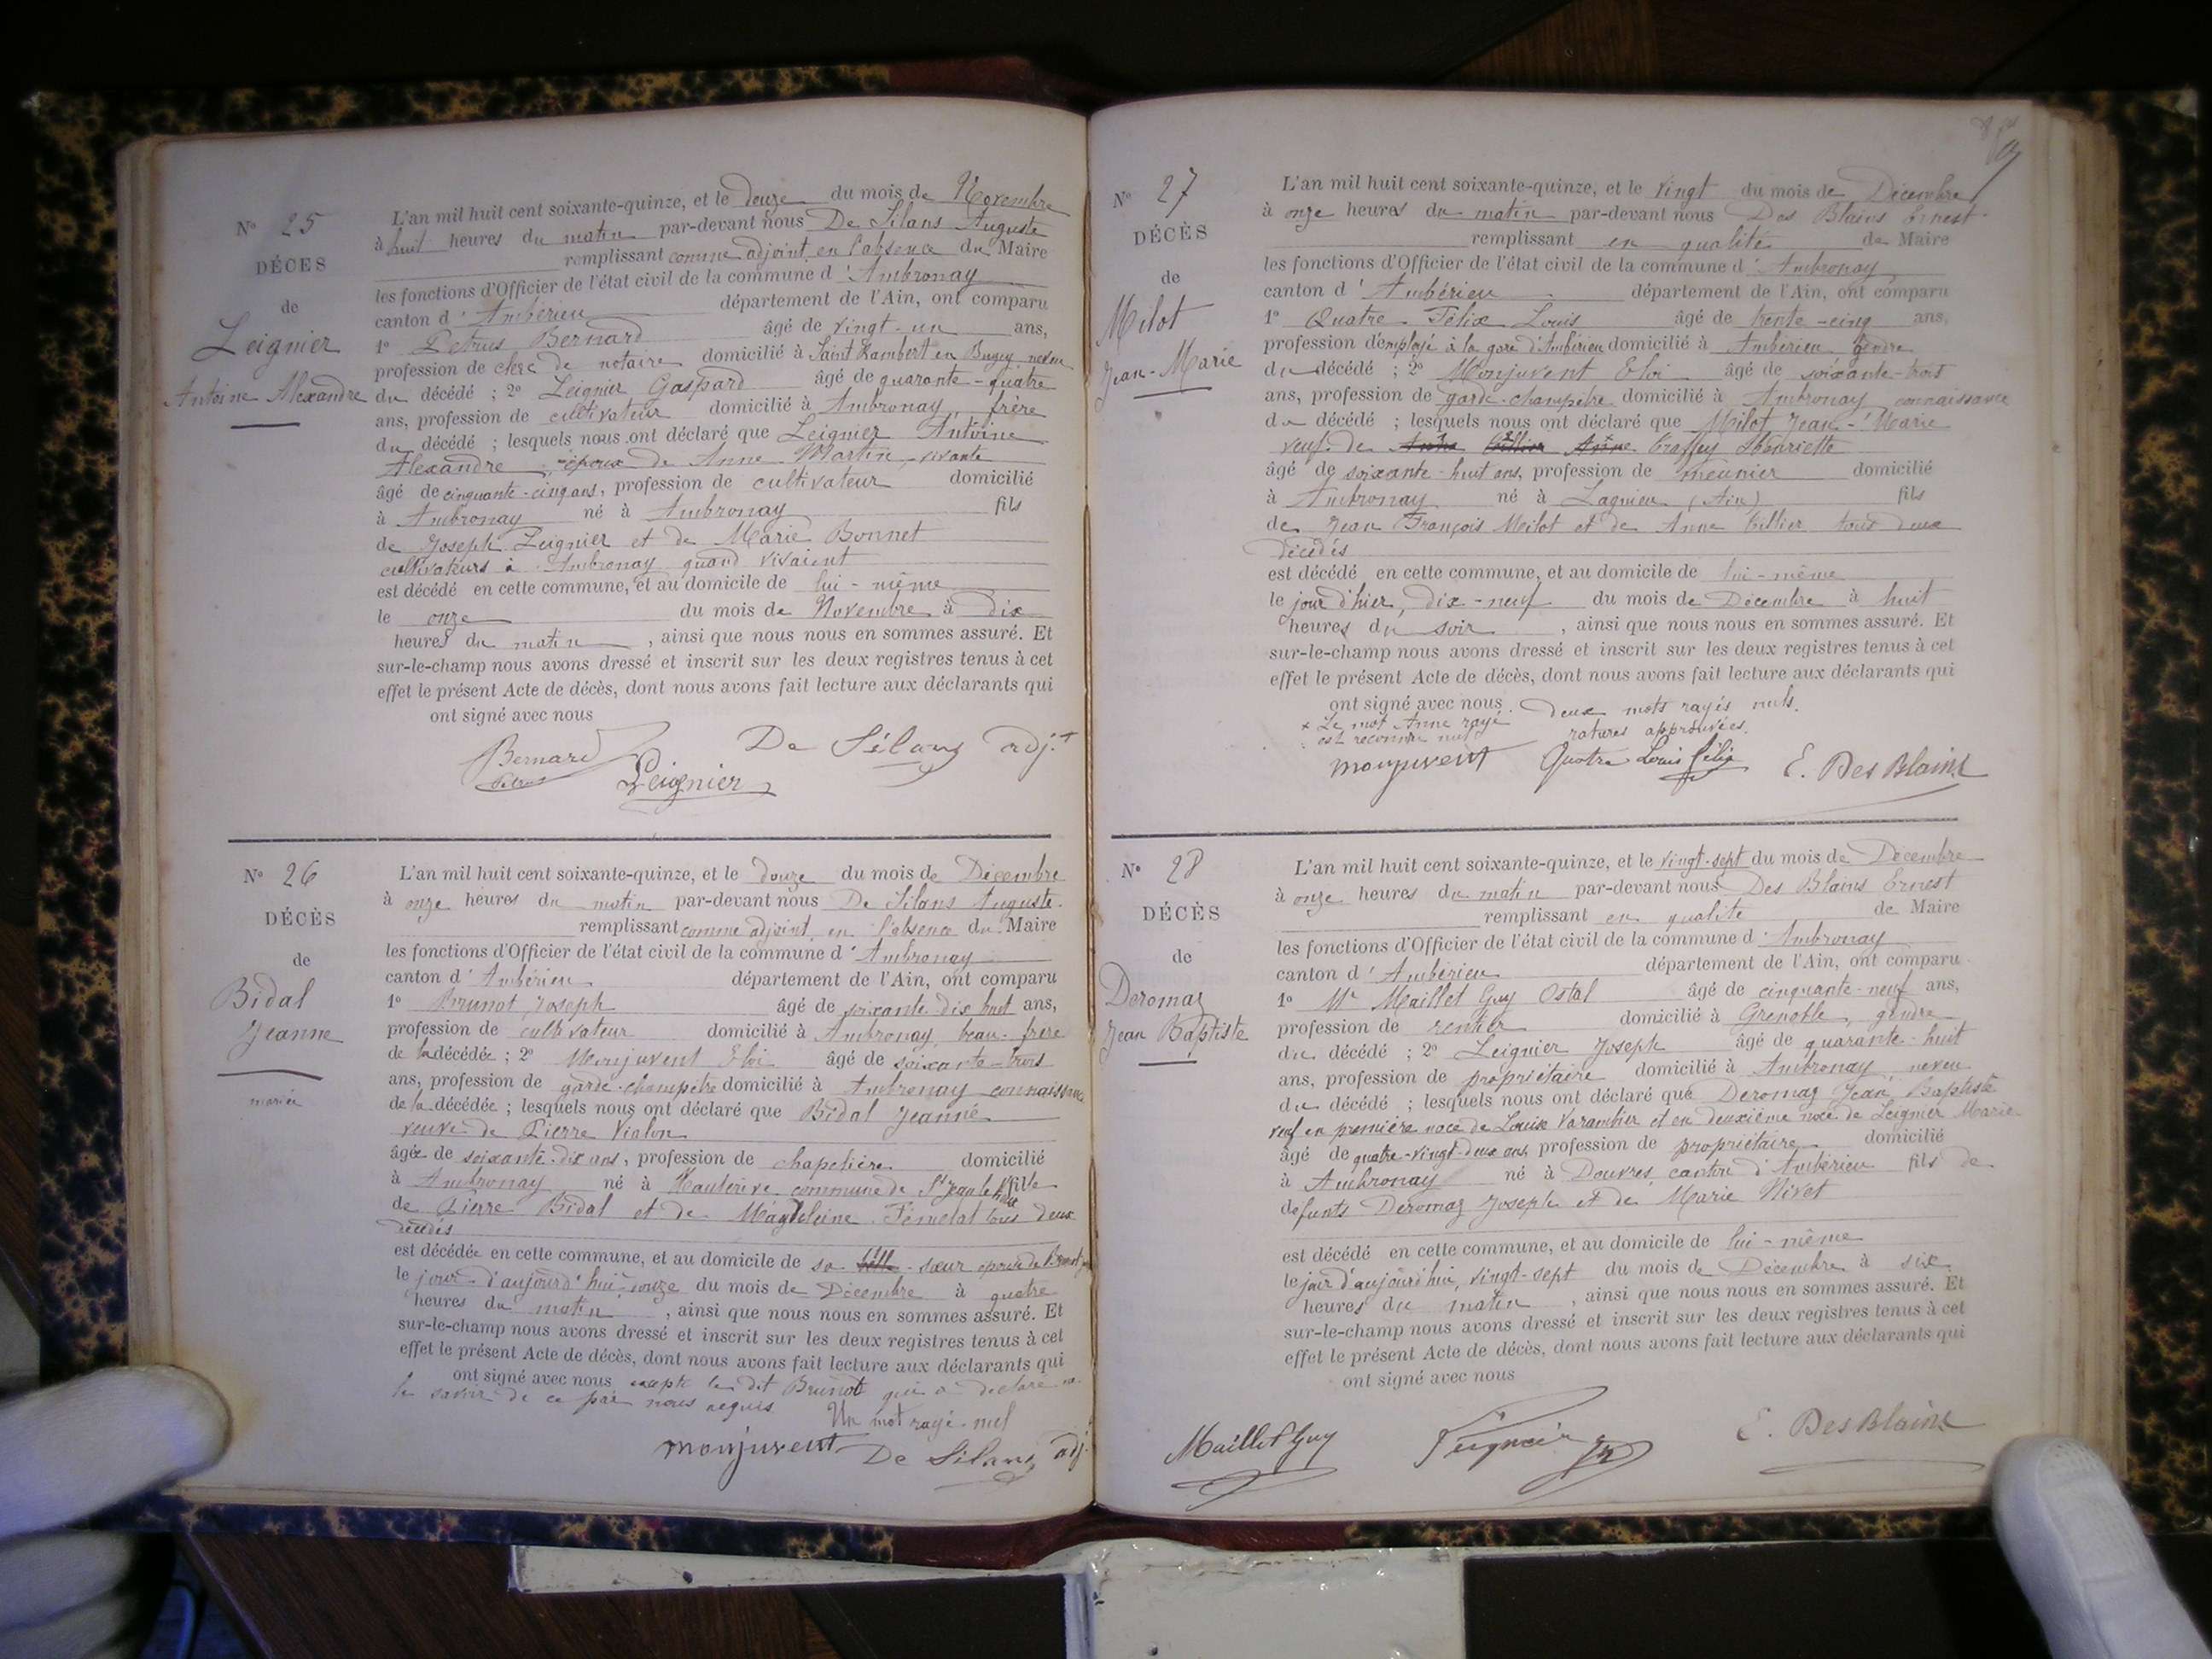 N° 25
DÉCES
de
Leignier
Antoine Alexandre
L'an mil huit cent soixante-quinze, et le douze du mois de Novembre
à huit heures du matin par-devant nous De Silans Auguste
remplissant comme adjoint en l'absence du Maire
les fonctions d'Officier de l'état civil de la commune d'Ambronay
canton d'Ambérieu département de l'Ain, ont comparu
1° Petrus Bernard âgé de vingt-un ans,
profession de clerc de notaire domicilié à Saint Rambert en Bugey neveu
du décédé ; 2° Leignier Gaspard âgé de quarante-quatre
ans, profession de cultivateur domicilié à Ambronay, frère
du décédé ; lesquels nous ont déclaré que Leignier Antoine
Alexandre, époux de Anne Martin, vivante
âgé de cinquante-cinq ans, profession de cultivateur domicilié
à Ambronay né à Ambronay fils
de Joseph Leignier et de Marie Bonnet
cultivateurs à Ambronay quand vivaient
est décédé en cette commune, et au domicile de lui-même
le onze du mois de Novembre à dix
heures du matin, ainsi que nous nous en sommes assuré. Et
sur-le-champ nous avons dressé et inscrit sur les deux registres tenus à cet
effet le présent Acte de décès, dont nous avons fait lecture aux déclarants qui
ont signé avec nous
Bernard De Silans adj.t
Petrus Leignier
N° 26
DÉCÈS
de
Bidal
Jeanne
mariée
L'an mil huit cent soixante-quinze, et le douze du mois de Décembre
à onze heures du matin par-devant nous De Silans Auguste
remplissant comme adjoint en l'absence du Maire
les fonctions d'Officier de l'état civil de la commune d'Ambronay
canton d'Ambérieu département de l'Ain, ont comparu
1° Brunot Joseph âgé de soixante dix huit ans,
profession de cultivateur domicilié à Ambronay, beau-frère
de la décédée ; 2° Monjuvent Eloi âgé de soixante-trois
ans, profession de garde-champêtre domicilié à Ambronay connaissance
de la décédée ; lesquels nous ont déclaré que Bidal Jeanne
veuve de Pierre Vialon
âgée de soixante-dix ans, profession de chapelière domicilié
à Ambronay né à Hauterive commune de St Jean le Vieux fille
de Pierre Bidal et de Magdeleine tous deux
décédés
est décédée en cette commune, et au domicile de sa belle-sœur épouse de Brunot
le jour d'aujourd'hui onze du mois de Décembre à quatre
heures du matin, ainsi que nous nous en sommes assuré. Et
sur-le-champ nous avons dressé et inscrit sur les deux registres tenus à cet
effet le présent Acte de décès, dont nous avons fait lecture aux déclarants qui
ont signé avec nous excepté le dit Brunot qui a déclaré ne
le savoir de ce par nous requis Un mot rayé nul
Monjuvent De Silans adj.
N° 27
DÉCÈS
de
Milot
Jean-Marie
L'an mil huit cent soixante-quinze, et le vingt du mois de Décembre
à onze heures du matin par-devant nous Des Blains Ernest
remplissant en qualité de Maire
les fonctions d'Officier de l'état civil de la commune d'Ambronay
canton d'Ambérieu département de l'Ain, ont comparu
1° Quatre Félix Louis âgé de trente-cinq ans,
profession d'employé à la gare d'Ambérieu domicilié à Ambérieu gendre
du décédé ; 2° Monjuvent Eloi âgé de soixante-trois
ans, profession de garde-champêtre domicilié à Ambronay connaissance
du décédé ; lesquels nous ont déclaré que Milot Jean-Marie
veuf de Henriette
âgé de soixante-huit ans, profession de meunier domicilié
à Ambronay né à Lagnieu (Ain) fils
de Jean François Milot et de Anne Villier tous deux
décédés
est décédé en cette commune, et au domicile de lui-même
le jour d'hier, dix-neuf du mois de Décembre à huit
heures du soir, ainsi que nous nous en sommes assuré. Et
sur-le-champ nous avons dressé et inscrit sur les deux registres tenus à cet
effet le présent Acte de décès, dont nous avons fait lecture aux déclarants qui
ont signé avec nous. Deux mots rayés nuls.
+ Le mot Anne rayé
est reconnu nul ratures approuvées.
Monjuvent Quatre Louis Félix E. Des Blains
N° 28
DÉCÈS
de
Deromaz
Jean Baptiste
L'an mil huit cent soixante-quinze, et le vingt-sept du mois de Décembre
à onze heures du matin par-devant nous Des Blains Ernest
remplissant en qualité de Maire
les fonctions d'Officier de l'état civil de la commune d'Ambronay
canton d'Ambérieu département de l'Ain, ont comparu
1° Mr Maillet Guy Ostal âgé de cinquante-neuf ans,
profession de rentier domicilié à Grenoble, gendre
du décédé ; 2° Leignier Joseph âgé de quarante-huit
ans, profession de propriétaire domicilié à Ambronay neveu
du décédé ; lesquels nous ont déclaré que Deromaz Jean Baptiste
veuf en première noce de Louise Varambier et en deuxième noce de Leignier Marie
âgé de quatre-vingt-deux ans, profession de propriétaire domicilié
à Ambronay né à Douvres, canton d'Ambérieu fils de
defunts Deromaz Joseph et de Marie Nivet
est décédé en cette commune, et au domicile de lui-même
le jour d'aujourd'hui, vingt-sept du mois de Décembre à six
heures du matin, ainsi que nous nous en sommes assuré. Et
sur-le-champ nous avons dressé et inscrit sur les deux registres tenus à cet
effet le présent Acte de décès, dont nous avons fait lecture aux déclarants qui
ont signé avec nous
Maillet Guy Leignier E. Des Blains